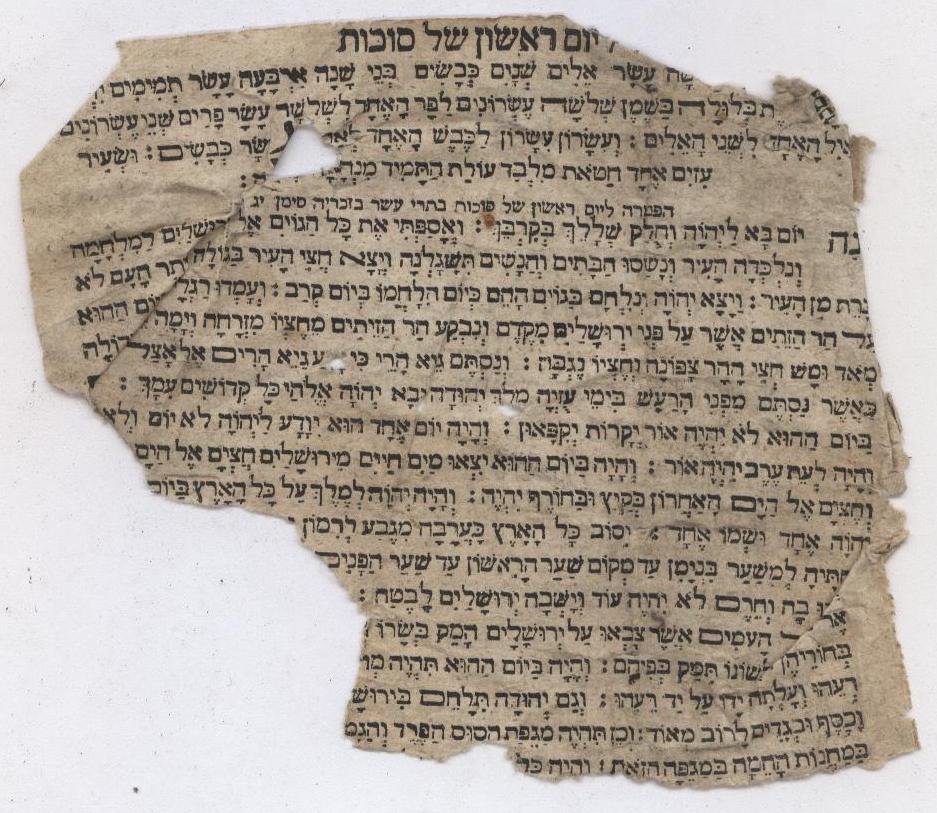 יום ראשון של סוכות
עָשָׂר אֵלִים שְׁנַיִם כְּבָשִׂים בְּנֵי שָׁנָה אַרְבָּעָה עָשָׂר תְּמִימִים
בַּשֶּׁמֶן שְׁלֹשָׁה עֶשְׂרוֹנִים לַפָּר הָאֶחָד לִשְׁלֹשָׁה עָשָׂר פָּרִים שְׁנֵי עֶשְׂרוֹנִים
הָאֶחָד לִשְׁנֵי הָאֵלִים : וְעִשָּׂרוֹן עִשָּׂרוֹן לַכֶּבֶשׂ הָאֶחָד כְּבָשִׂים : וּשְׂעִיר
עִזִּים אֶחָד חַטָּאת מִלְּבַד עוֹלַת הַתָּמִיד
הפטרה ליום ראשון של סוכות בתרי עשר בזכריה סימן יג
יוֹם בָּא לַיהֹוָה וְחֻלַּק שְׁלָלֵךְ בְּקִרְבֵּךְ : וְאָסַפְתִּי אֶת כָּל הַגּוֹיִם אֶל יְרוּשָׁלַיִם לַמִּלְחָמָה
וְנִלְכְּדָה הָעִיר וְנָשַׁסּוּ הַבָּתִּים וְהַנָּשִׁים תִּשָּׁגַלְנָה וְיָצָא חֲצִי הָעִיר בַּגּוֹלָה הָעָם לֹא
מִן הָעִיר : וְיָצָא יְהֹוָה וְנִלְחַם בַּגּוֹיִם הָהֵם כְּיוֹם הִלָּחֲמוֹ בְּיוֹם קְרָב : וְעָמְדוּ הַהוּא
הַר הַזֵּתִים אֲשֶׁר עַל פְּנֵי יְרוּשָׁלַיִם מִקֶּדֶם וְנִבְקַע הַר הַזֵּיתִים מֵחֶצְיוֹ מִזְרָחָה וָיָמָּה
מְאֹד וּמָשׁ חֲצִי הָהָר צָפוֹנָה וְחֶצְיוֹ נֶגְבָּה : וְנַסְתֶּם גֵּיא הָרַי כִּי גֵּיא הָרִים אֶל אָצַל
כַּאֲשֶׁר נַסְתֶּם מִפְּנֵי הָרַעַשׁ בִּימֵי עֻזִּיָּה מֶלֶךְ יְהוּדָה וּבָא יְהֹוָה אֱלֹהַי כָּל קְדוֹשִׁים עִמָּךְ :
בַּיּוֹם הַהוּא לֹא יִהְיֶה אוֹר יְקָרוֹת יְקִפָּאוּן : וְהָיָה יוֹם אֶחָד הוּא יִוָּדַע לַיהֹוָה לֹא יוֹם וְלֹא
וְהָיָה לְעֵת עֶרֶב יִהְיֶה אוֹר : וְהָיָה בַּיּוֹם הַהוּא יֵצְאוּ מַיִם חַיִּים מִירוּשָׁלַיִם חֶצְיָם אֶל הַיָּם
וְחֶצְיָם אֶל הַיָּם הָאַחֲרוֹן בַּקַּיִץ וּבַחוֹרֶף יִהְיֶה : וְהָיָה יְהֹוָה לְמֶלֶךְ עַל כָּל הָאָרֶץ בַּיּוֹם
אֶחָד וּשְׁמוֹ אֶחָד : יִסּוֹב כָּל הָאָרֶץ כָּעֲרָבָה מִגֶּבַע לְרִמּוֹן
לְמִשַּׁעַר בִּנְיָמִן עַד מְקוֹם שַׁעַר הָרִאשׁוֹן עַד שַׁעַר הַפִּנִּים
בָהּ וְחֵרֶם לֹא יִהְיֶה עוֹד וְיָשְׁבָה יְרוּשָׁלַיִם לָבֶטַח :
הָעַמִּים אֲשֶׁר צָבְאוּ עַל יְרוּשָׁלָיִם הָמֵק בְּשָׂרוֹ
בְּחוֹרֵיהֶן תִּמַּק בְּפִיהֶם : וְהָיָה בַּיּוֹם הַהוּא תִּהְיֶה
רֵעֵהוּ וְעָלְתָה יָדוֹ עַל יַד רֵעֵהוּ : וְגַם יְהוּדָה תִּלָּחֵם
וָכֶסֶף וּבְגָדִים לָרוֹב מְאוֹד : וְכֵן תִּהְיֶה מַגֵּפַת הַסּוּס הַפֶּרֶד
בַּמַּחֲנוֹת הָהֵמָּה כַּמַּגֵּפָה הַזֹּאת : וְהָיָה כָּל